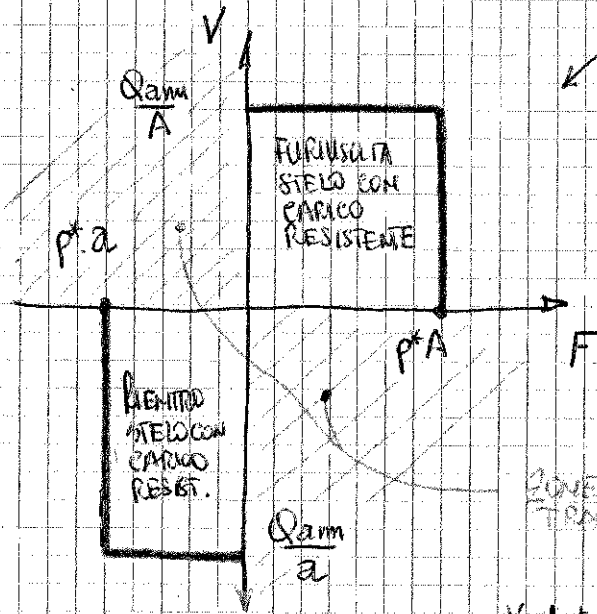 V
Qam
A
FURIUSCITA
STELO CON
CARICO
RESISTENTE
p*.a
p*A
F
RIENTRO
STELO CON
CARICO
RESIST.
ZONE
Qam
a